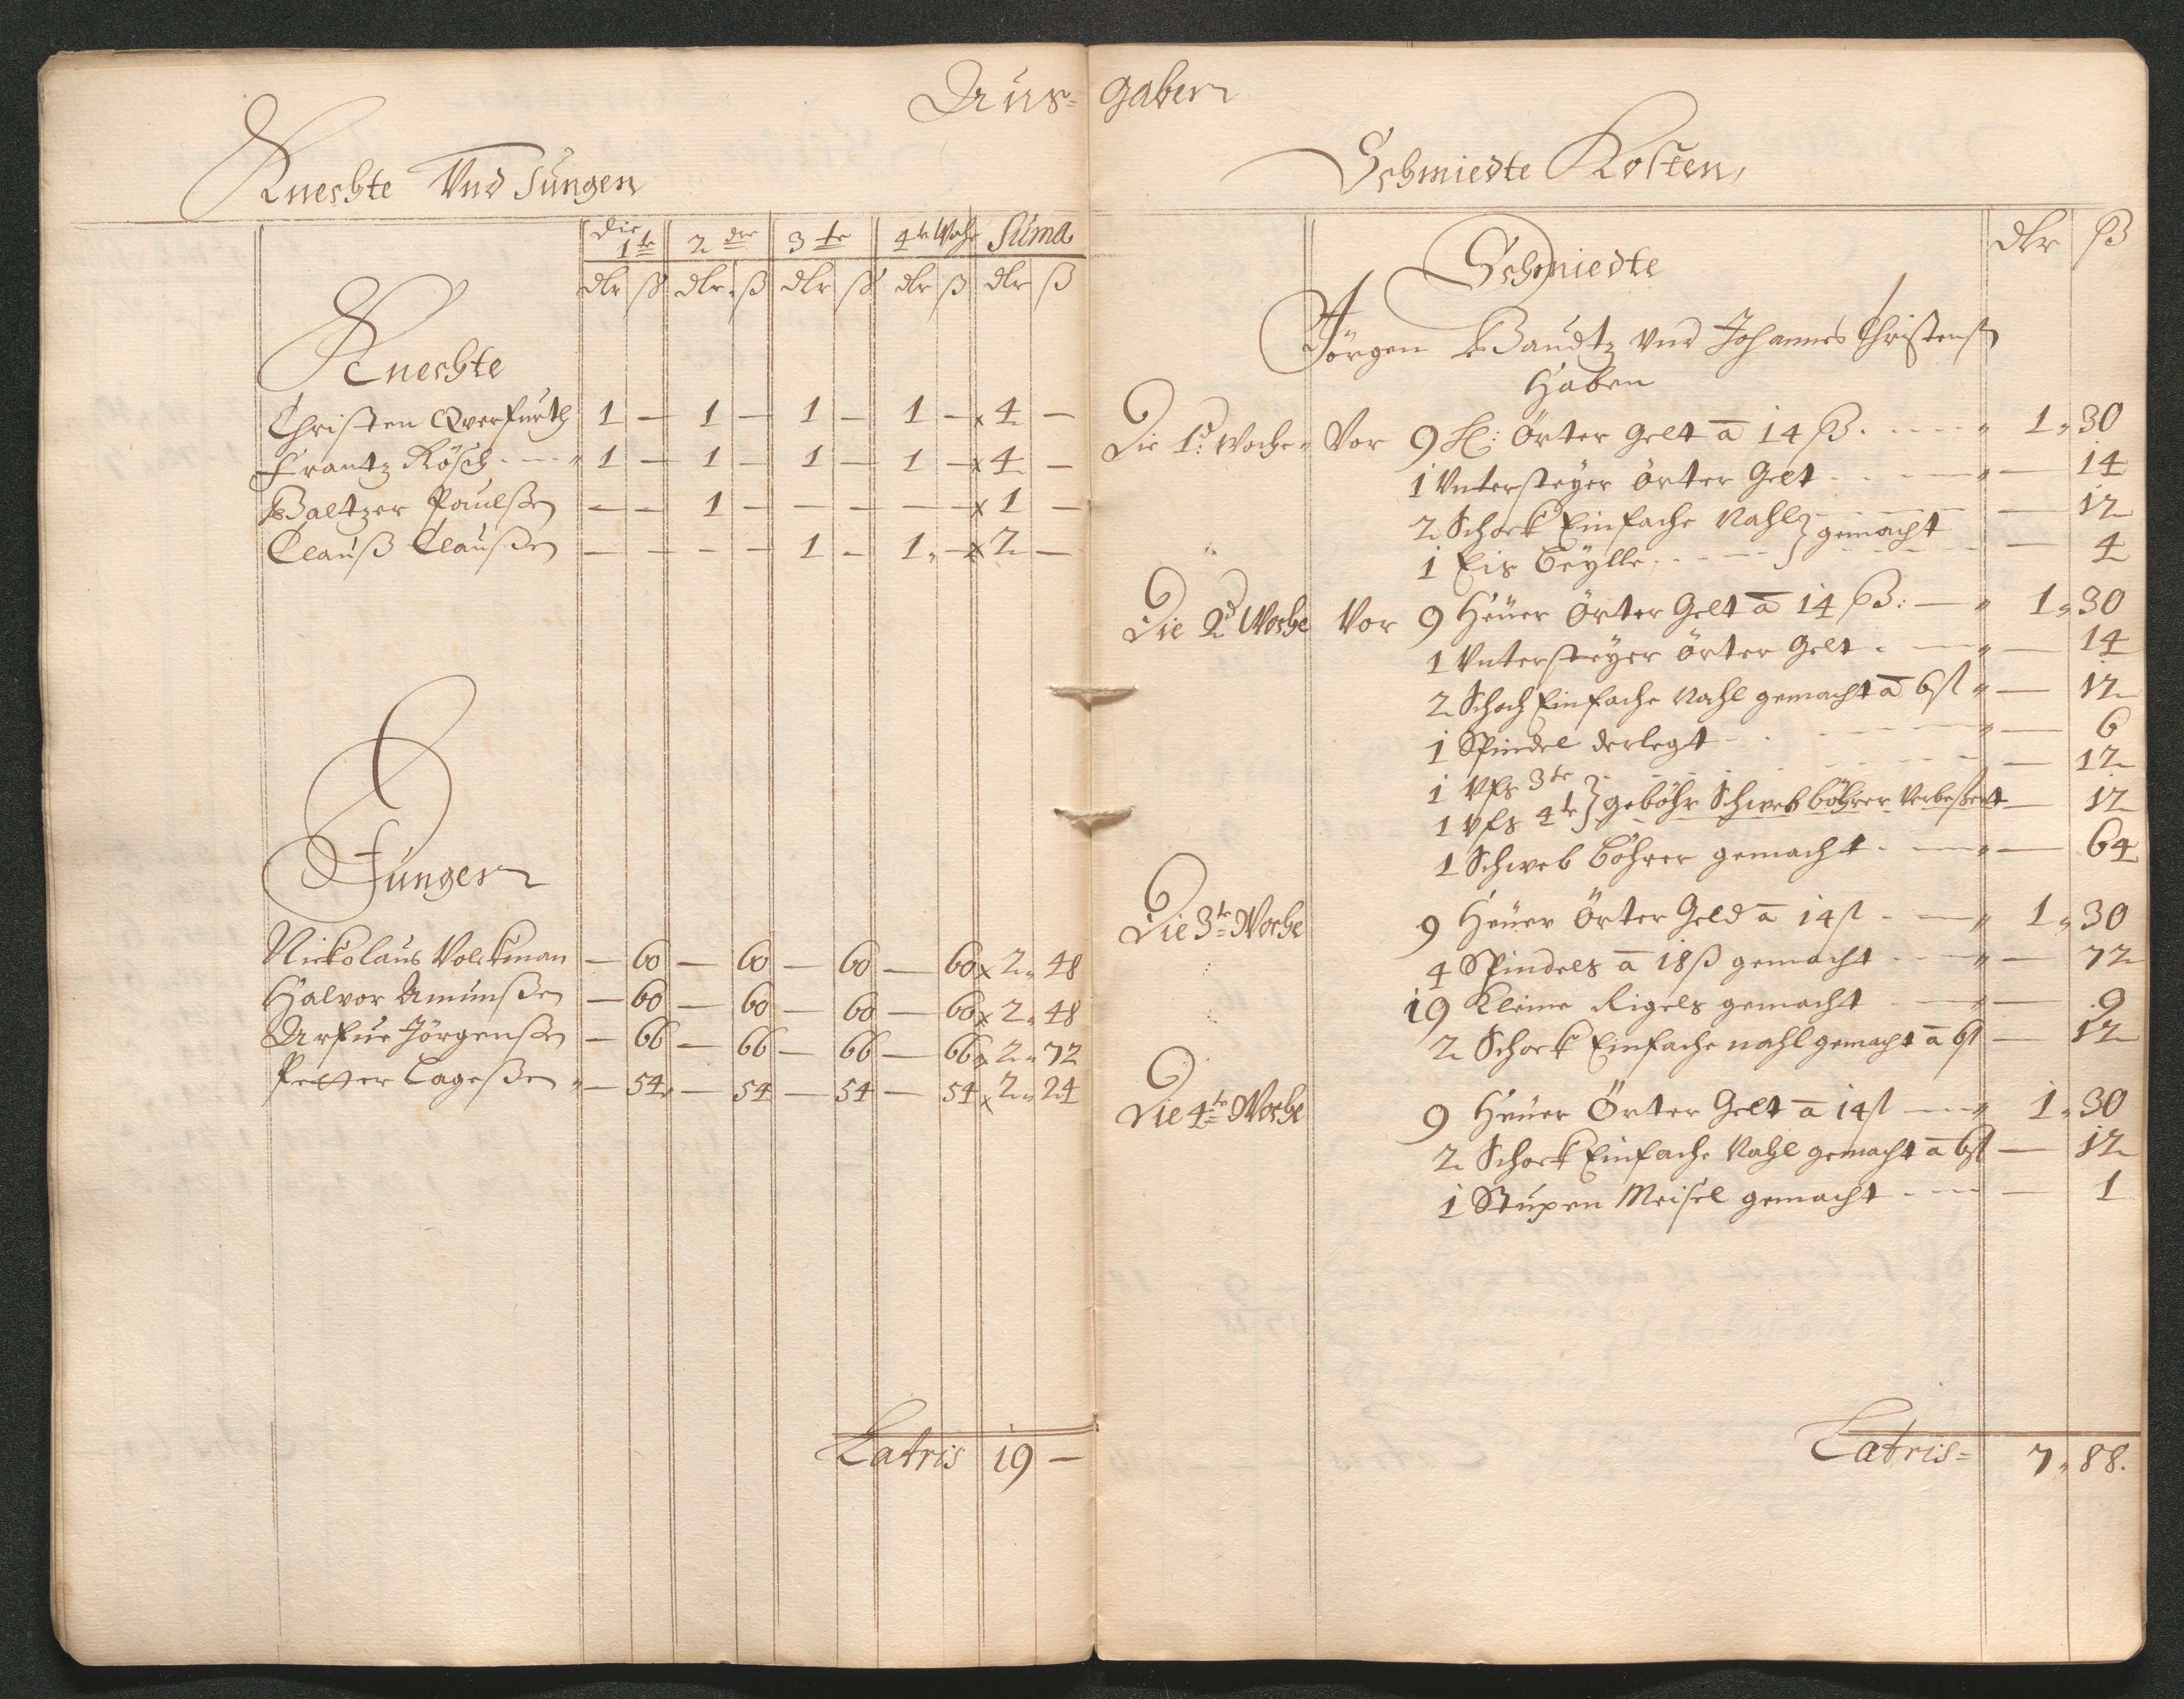 Aus= gaben
Knechte Und Jungen
Die
1te 2 der 3te 4te Woche Suma
dlr ß dlr ß dlr ß dlr ß dlr ß
Knechte
Christen Qverfurth 1 — 1 — 1 — 1 — x 4 —
Frantz Rösch 1 — 1 — 1 — 1 — x 4 —
Baltzer Paulßen — — 1 — — — — — x 1 —
Clauß Claußen — — — — 1 — 1 — x 2 —
Jungen
Nickolaus Volckman — 60 — 60 — 60 — 60 x 2 48
Halvor Amunßen — 60 — 60 — 60 — 60 x 2 48
Jörgenßen — 66 — 66 — 66 — 66 x 2 72
Petter Lageßen — 54 — 54 — 54 — 54 x 2 24
Latris 19 —
Schmiedte Kosten
dlr ß
Schmiedte
Jörgen Baudtz und Johannes Christens
Haben
Die 1d Woche Vor 9 H: Örter Gelt a 14 ß. 1 30
1 Untersteyer örter Gelt — 14
2 Schock Einfache Nahl } gemacht — 12
1 Eis Beylle — 4
Die 2d Woche Vor 9 Heuer Örter Gelt a 14 ß: — 1 30
1 Untersteyer örter Gelt — 14
2 Schoch Einfache Nahl gemacht a 6ß — 12
1 Spindel verlegt — 6
1 Ufs 3te — 12
1 Ufs 4te } geböhr Schweb böhrer Verbeßert — 12
1 Schweb böhrer gemacht — 64
Die 3te Woche 9 Heuer Örter Geld a 14ß — 1 30
4 Spindels a 18ß gemacht — 72
19 Kleine Rigels gemacht — 9
2 Schock Einfache nahl gemacht a 6ß — 12
Die 4te Woche 9 Heuer Örter Gelt a 14ß — 1 30
2 Schock Einfache Nahl gemacht a 6ß — 12
1 Stupen Meisel gemacht — 1
Latris= 7 88.